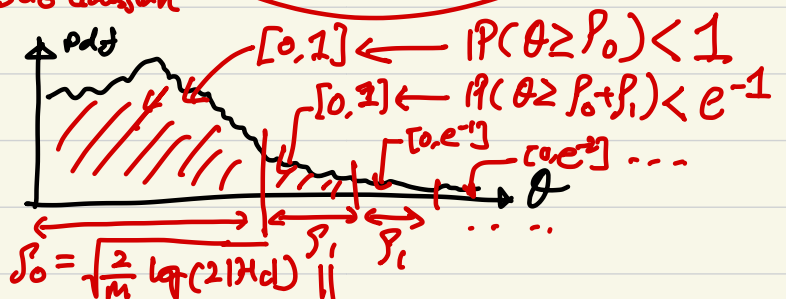 pdf
[0,1] ← IP(θ≥ρ₀)<1
[0,1] ← IP(θ≥ρ₀+ρ₁)<e⁻¹
[0,e⁻¹]
[0,e⁻²] ....
θ
ρ₁ ρ₁ .. ..
ρ₀ = √(2/m) log(2|H|d) ||